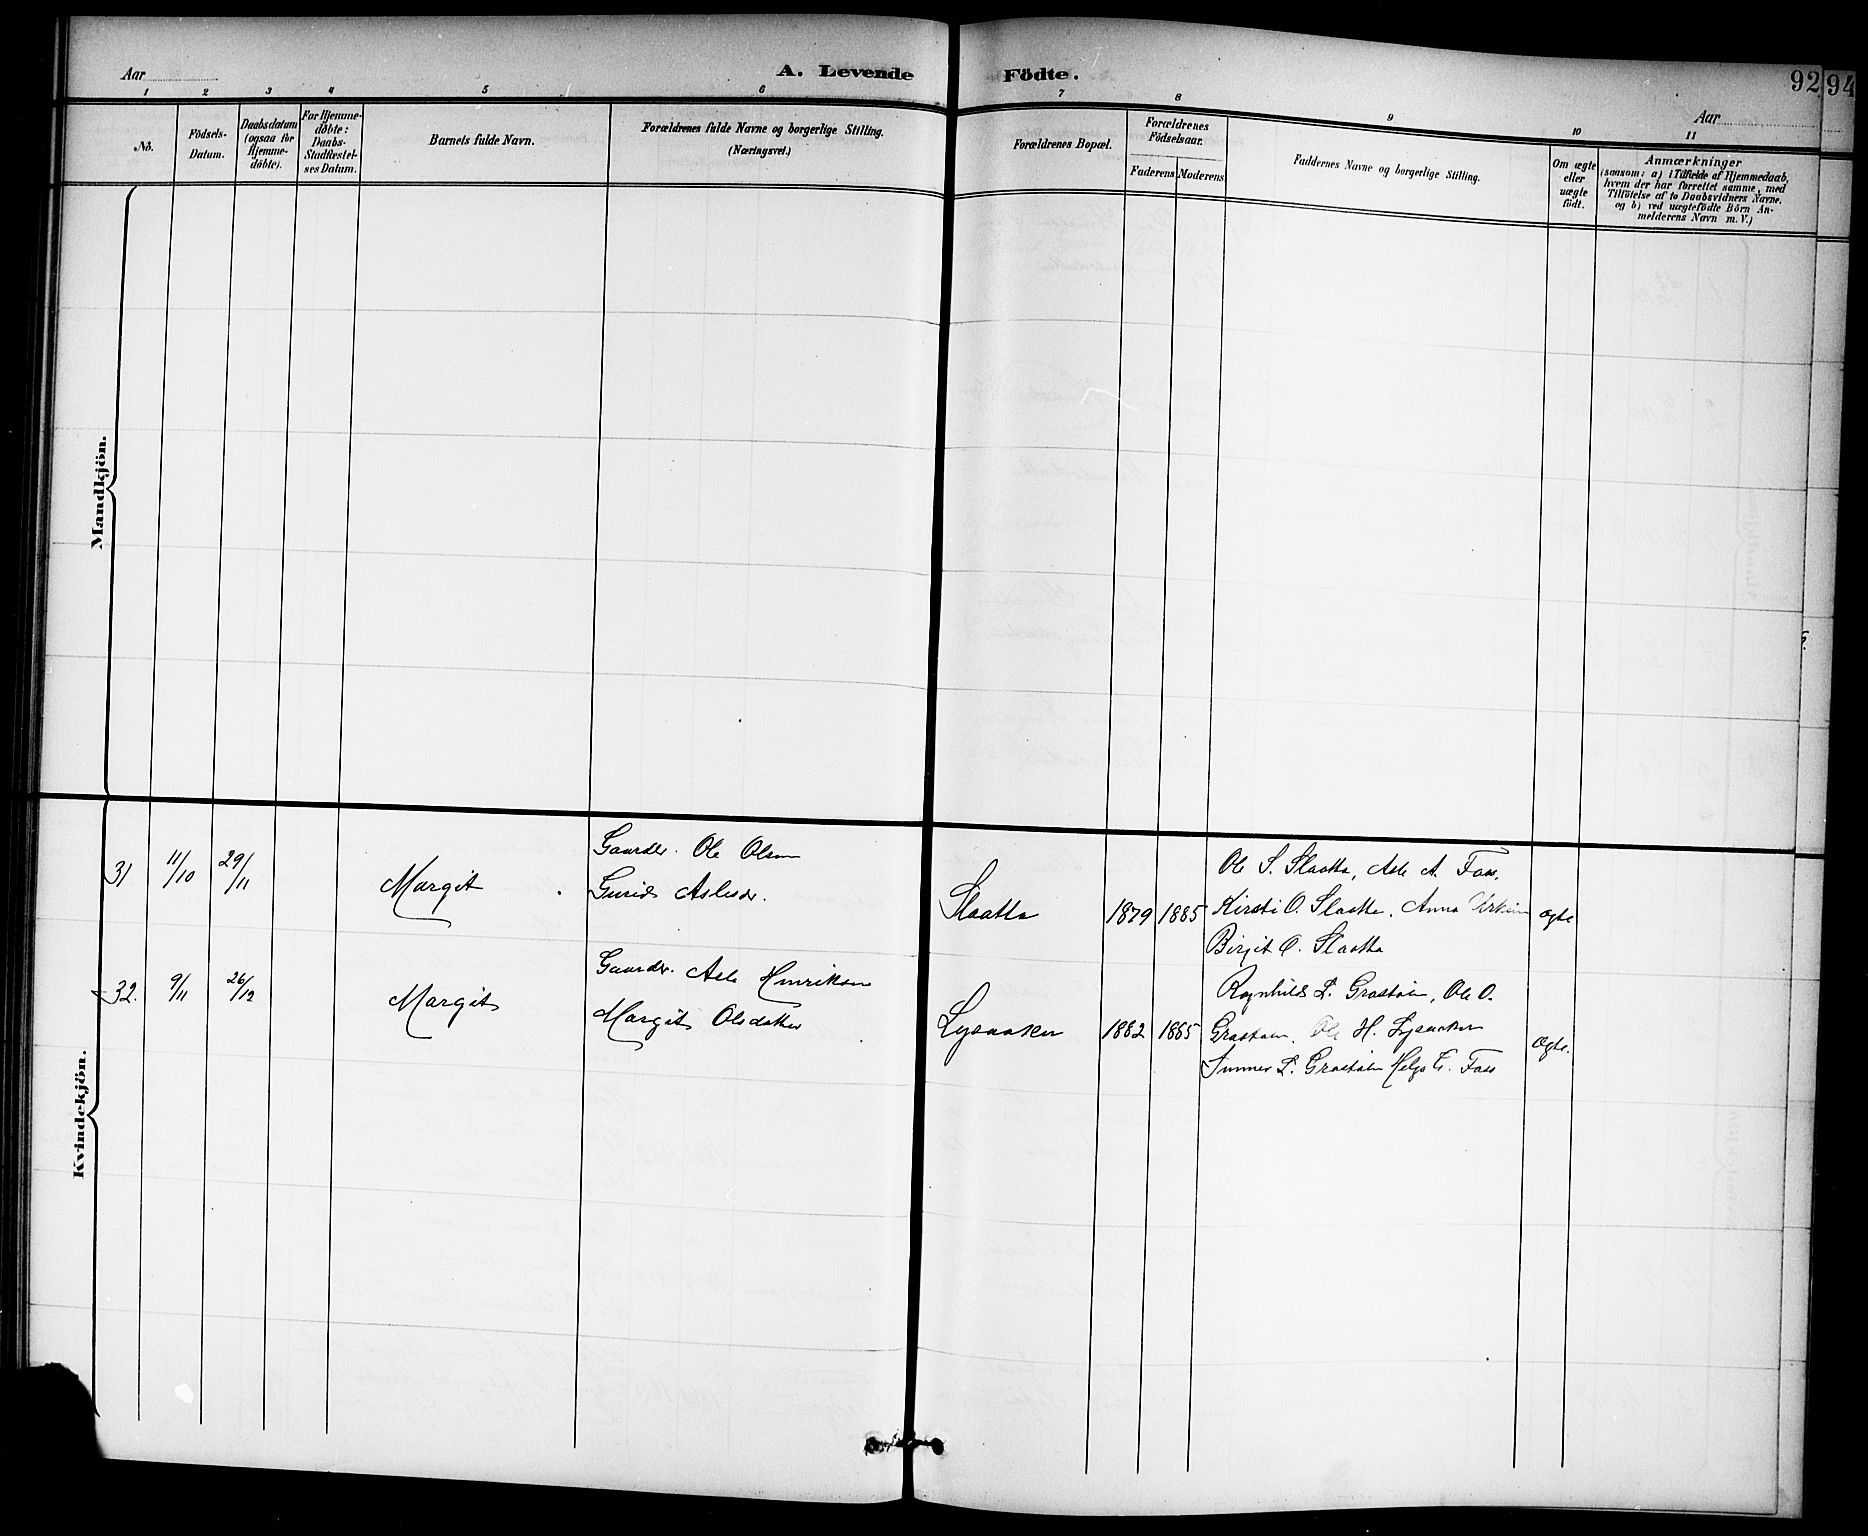 Aar
A. Levende Födte.
92 94
Aar
1 2 3 4 5 6 7 8 9 10 11
Nô.
Födsels-
Datum.
Daabsdatum
(ogsaa for
Hjemme-
döbte).
For Hjemme-
döbte:
Daabs-
Stadfæstel-
ses Datum.
Barnets fulde Navn.
Forældrenes fulde Navne og borgerlige Stilling.
(Næringsvei.)
Forældrenes Bopæl.
Forældrenes
Födselsaar.
Faderens Moderens
Faddernes Navne og borgerlige Stilling.
Om ægte
eller
uægte
födt.
Anmærkninger
(saasom: a) i Tilfælde af Hjemmedaab,
hvem der har forrettet samme, med
Tilföielse af to Daabsvidners Navne,
og b) ved uægtefödte Börn An-
melderens Navn m. V.)
Mandkjön.
Kvindekjön.
31 11/10 29/11 Margit
Gaardbr. Ole Olsen
Gurid Aslesdr.
Slaatta 1879 1885
Ole S. Slaatta, Asle A. Foss.
Kirsti O. Slaatta, Anna
Birgit O. Slaatta
ægte
32. 9/11 26/12 Margit
Gaardbr. Asle Henriksen
Margit Olsdatter
Lysaaker 1882 1885
Ragnhild L. Grøstøin, Ole O.
Grøstøin, Ole H. Lysaaker
L. Grøstøin Helge E. Foss
ægte.